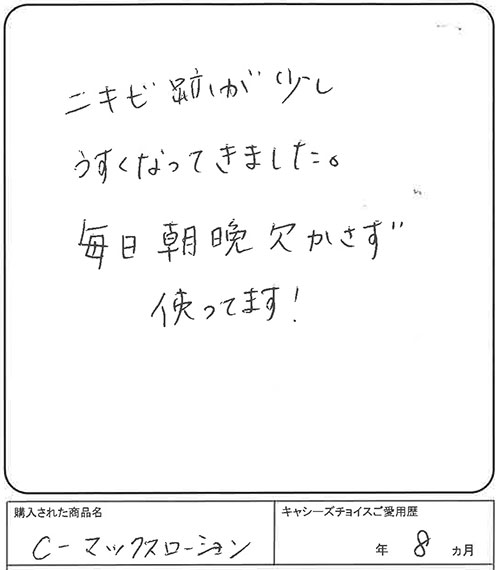 ニキビ跡が少し
うすくなってきました。
毎日朝晩欠かさず
使ってます!
購入された商品名
C-マックスローション
キャシーズチョイスご愛用歴
年 8 カ月